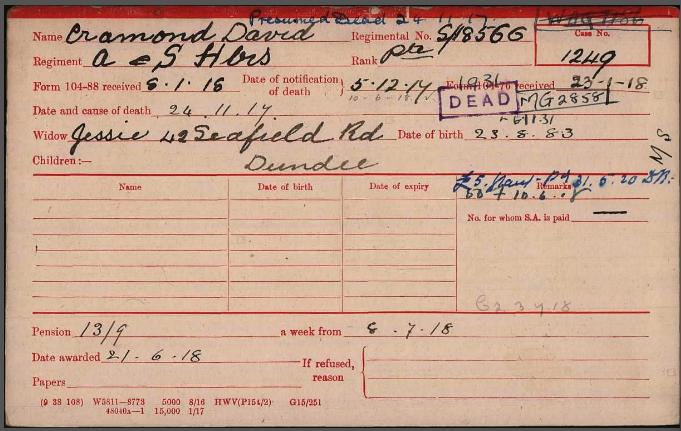 Presumed Dead 24 11.17.
Name Cramond David Regimental No. S/18566 Case No.
Regiment A & S Hdrs Rank Pte 1249
Form 104-88 received 8.1.18 Date of notification of death } 5.12.17 Form 104-76 received 23-1-18
1931
DEAD MG2858
Date and cause of death 24.11.17
Widow Jessie 42 Seafield Rd Date of birth 23.8.83
Children:— Dundee
MS
Name Date of birth Date of expiry Remarks
£5. 31.5.20
No. for whom S.A. is paid —
Pension 13/9 a week from 8.7.18
Date awarded 21.6.18 If refused, reason {
Papers
(9 38 108) W5811—8773 5000 8/16 HWV(P154/2) G15/251
48040a—1 15,000 1/17